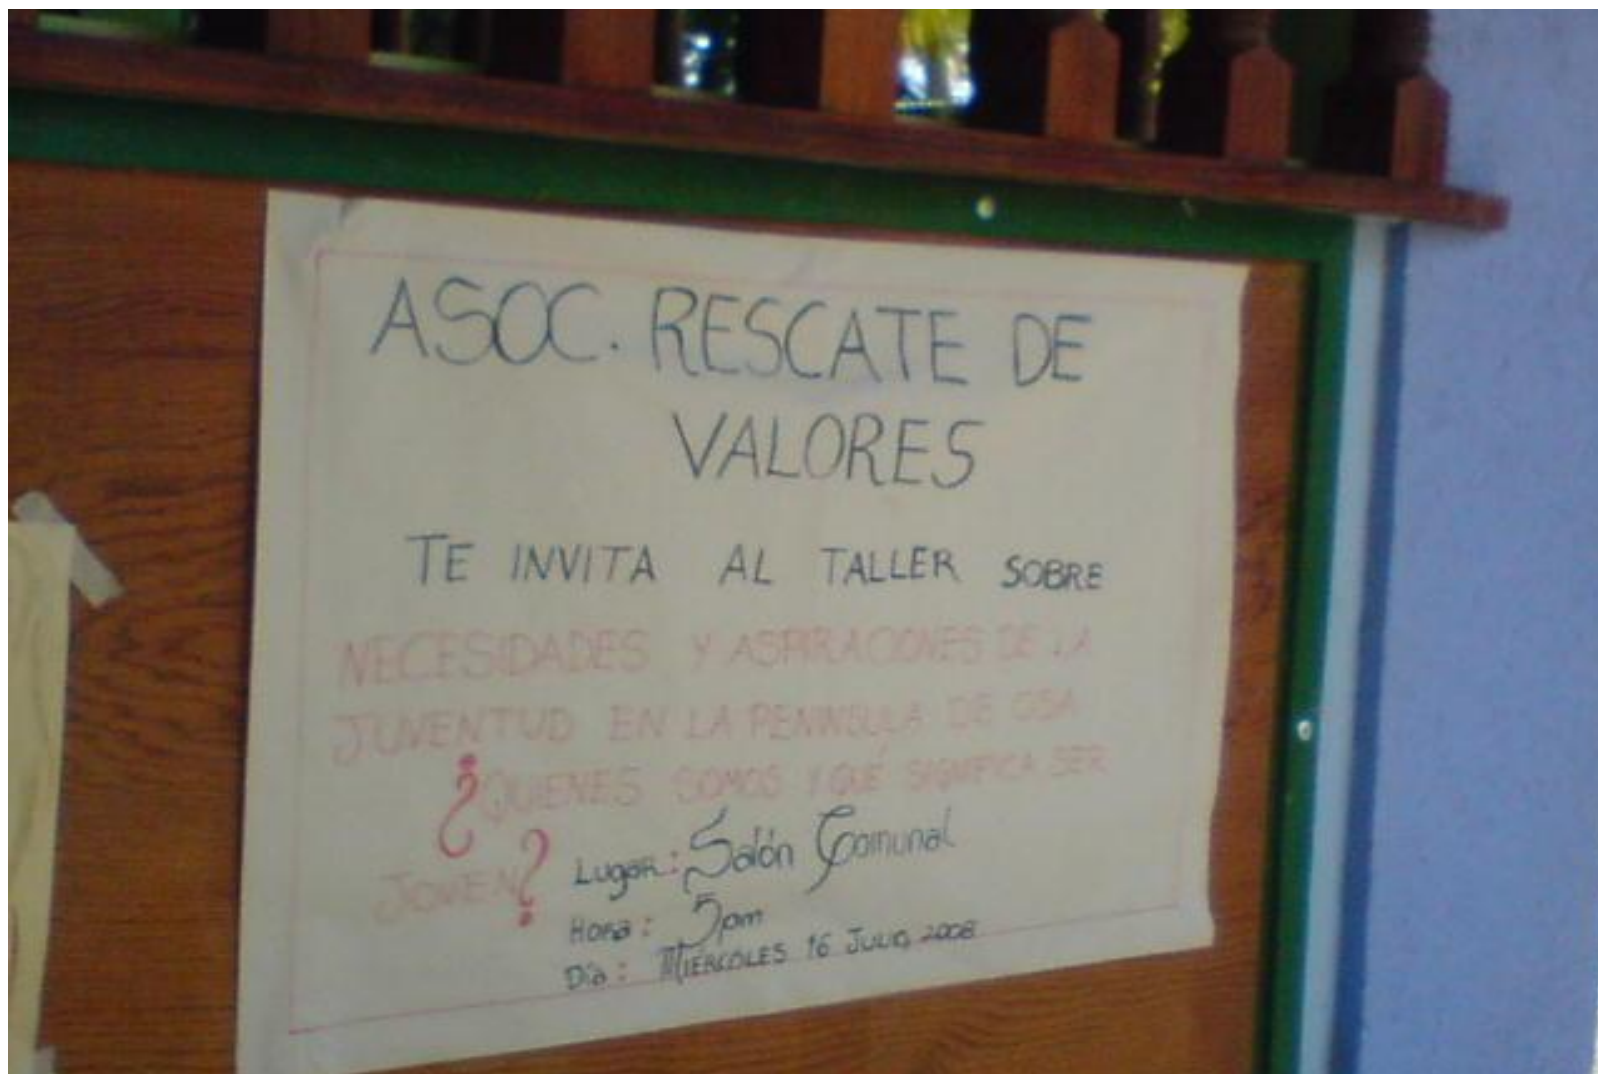 ASOC. RESCATE DE
VALORES
TE INVITA AL TALLER SOBRE
NECESIDADES Y ASPIRACIONES DE LA
JUVENTUD EN LA PENINSULA DE OSA
¿QUIENES SOMOS Y QUÉ SIGNIFICA SER
JOVEN?
Lugar: Salón Comunal
Hora: 5pm
Día: MIÉRCOLES 16 JULIO 2008